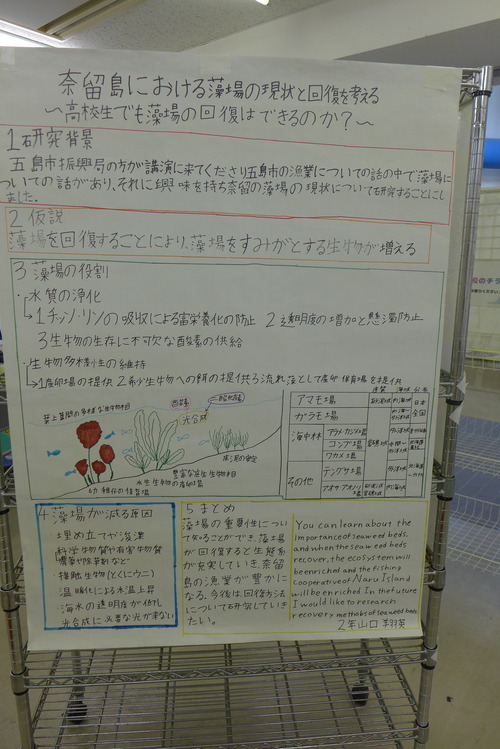 奈留島における藻場の現状と回復を考える
〜高校生でも藻場の回復はできるのか?〜
1 研究背景
五島市振興局の方が講演に来てくださり五島市の漁業についての話の中で藻場に
ついての話があり、それに興味を持ち奈留の藻場の現状について研究することにし
ました。
2 仮説
藻場を回復することにより、藻場をすみがとする生物が増える
3 藻場の役割
・水質の浄化
↳1チッソ・リンの吸収による富栄養化の防止 2透明度の増加と懸濁防止
3生物の生存に不可欠な酸素の供給
・生物多様性の維持
↳1産卵場の提供 2希少生物への餌の提供 3流れ藻として産卵 保育場を提供
光合成
豊富な底生生物相
水生生物の産卵場
アマモ場
ガラモ場
海中林
アラメ・カジメ場
コンブ場
ワカメ場
その他
テングサ場
アオサ・アオノリ場
日本
全国
4 藻場が減る原因
・埋め立てや浚渫
・科学物質や有害物質
農薬や除草剤など
・植食生物(とくにウニ)
・温暖化による水温上昇
・海水の透明度が低下し
光合成に必要な光が来ない
5 まとめ
藻場の重要性につい
て知ることができ、藻場
が回復すると生態系
が充実していき奈留
島の漁業が豊かに
なる。今後は回復方法
について研究していき
たい。
You can learn about the
importance of seaweed beds,
and when the seaweed beds
recover, the ecosystem will
be enriched and the fishing
cooperative of Naru Island
will be enriched. In the future
I would like to research
recovery methobs of seaweed beds
2年山口